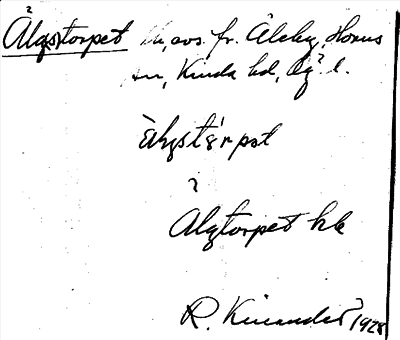 Älgstorpet t., avs. fr. Åleby, Horns
sn, Kinda hd, Ög. l.
älgstorpet
Älgtorpet hk
R. Kinander 1928